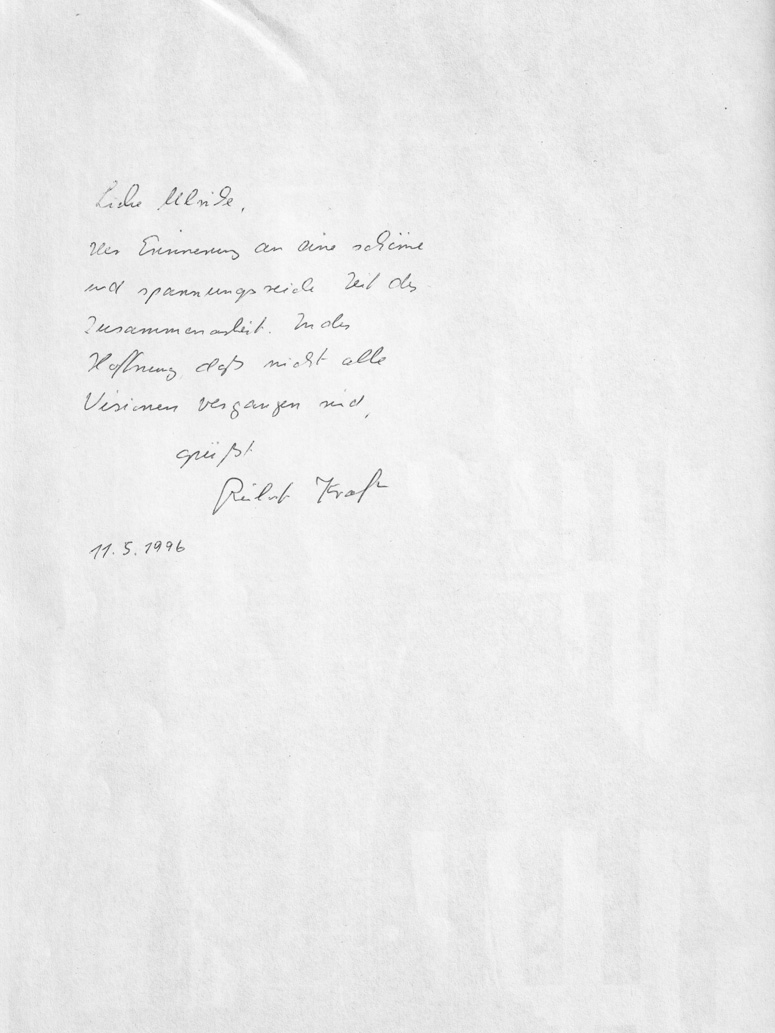 Liebe Ulrike,
zur Erinnerung an eine schöne
und spannungsreiche Zeit der
Zusammenarbeit. In der
Hoffnung, daß nicht alle
Visionen vergangen sind,
grüßt
Kraft
11.5.1996